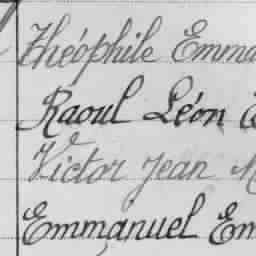 Théophile Emma
Raoul Léon
Victor Jean M
Emmanuel Em